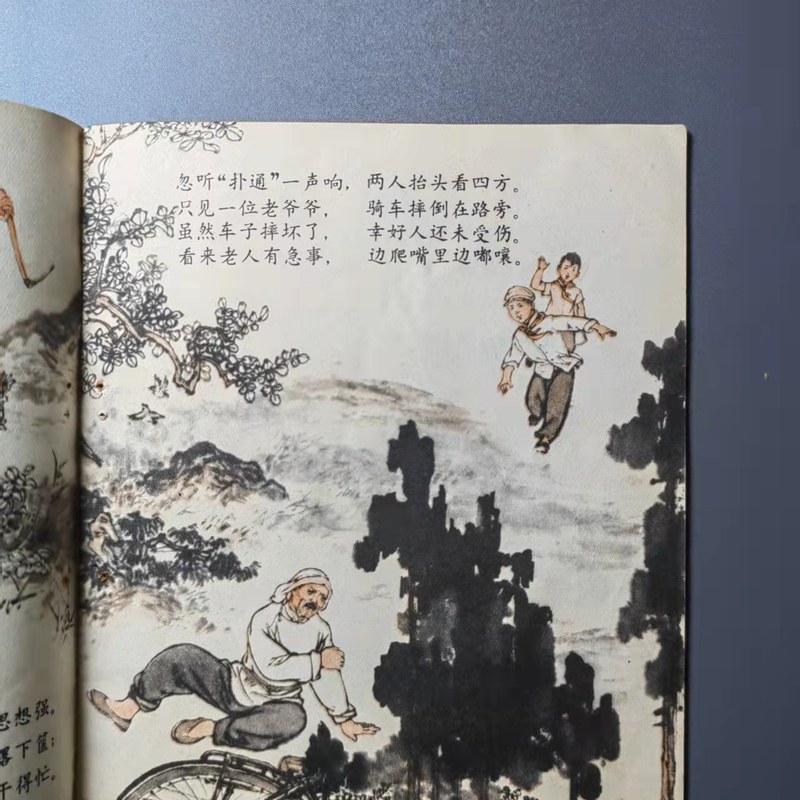 忽听“扑通”一声响， 两人抬头看四方。
只见一位老爷爷， 骑车摔倒在路旁。
虽然车子摔坏了， 幸好人还未受伤。
看来老人有急事， 边爬嘴里边嘟囔。
思想强。
落下筐；
干得忙。